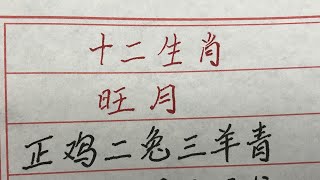 十二生肖
旺月
正鸡二兔三羊青